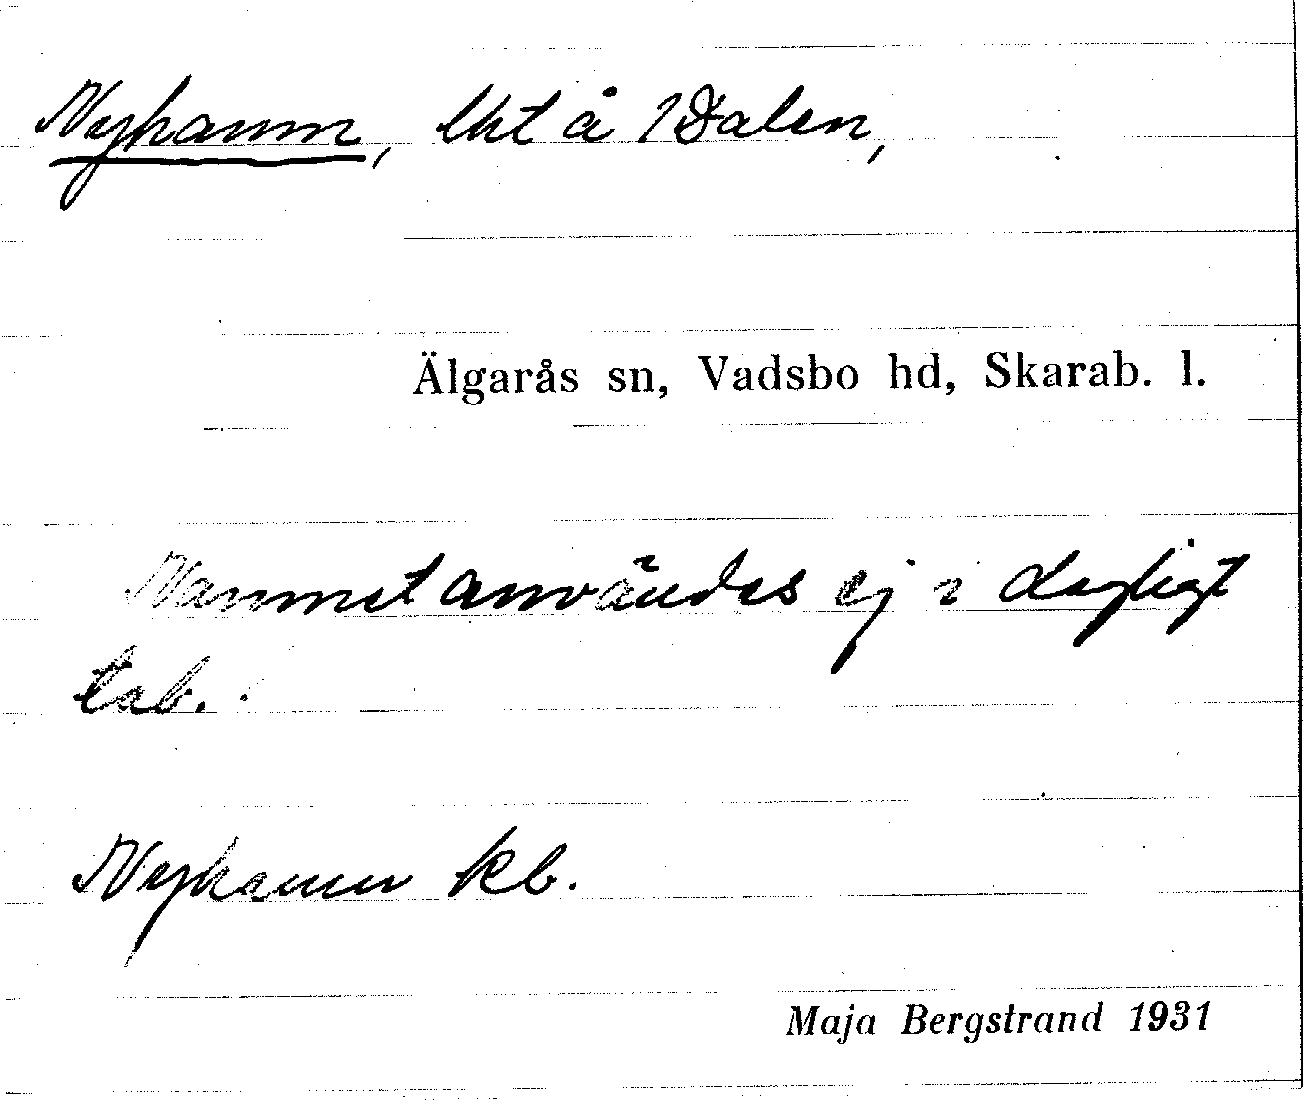 Nyhamn, lht å 1 Dalen,
Älgarås sn, Vadsbo hd, Skarab. l.
Namnet användes ej i dagligt
tal.
Nyhamn kb.
Maja Bergstrand 1931